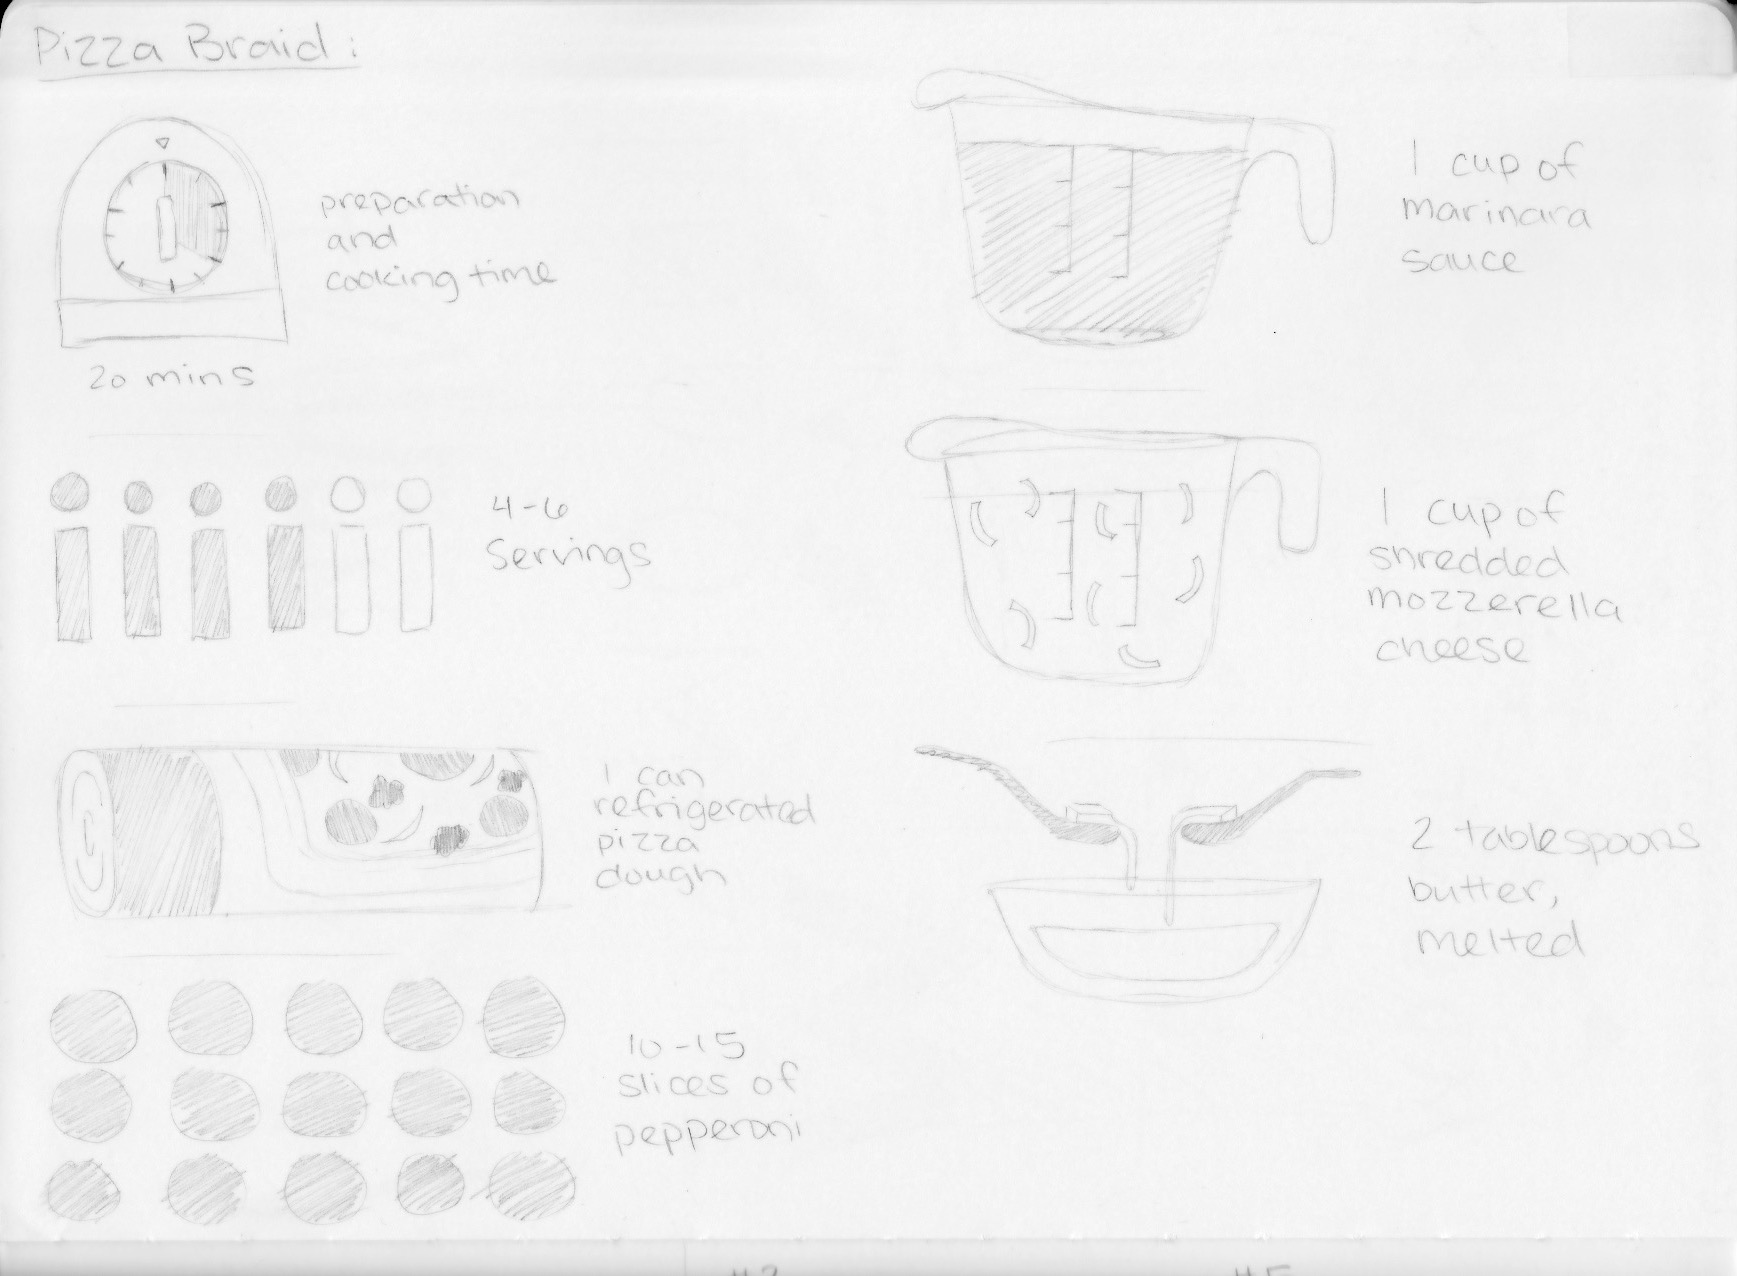 Pizza Braid:
preparation
and
cooking time
20 mins
4-6
Servings
1 can
refrigerated
pizza
dough
10-15
slices of
pepperoni
1 cup of
marinara
sauce
1 cup of
shredded
mozzerella
cheese
2 tablespoons
butter,
melted